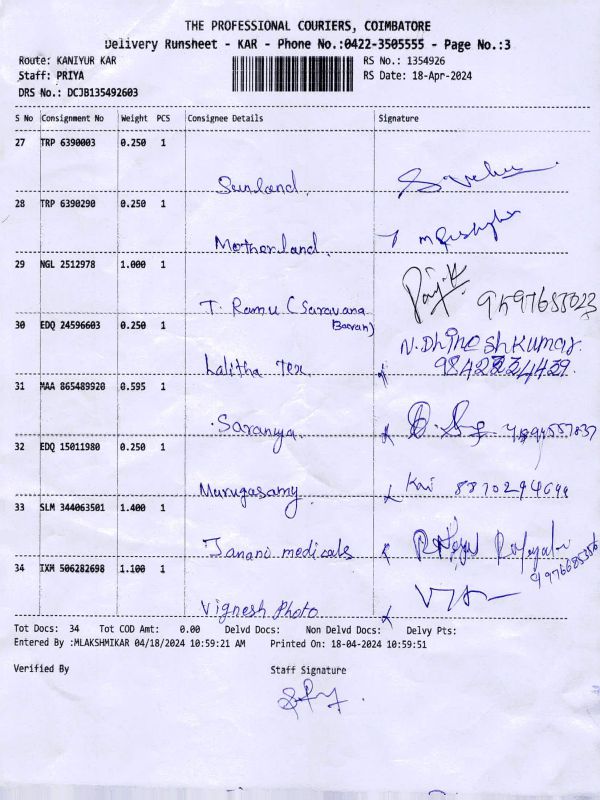 THE PROFESSIONAL COURIERS, COIMBATORE
Delivery Runsheet - KAR - Phone No.:0422-3505555 - Page No.:3
Route: KANIYUR KAR RS No.: 1354926
Staff: PRIYA RS Date: 18-Apr-2024
DRS No.: DCJB135492603
S No Consignment No Weight PCS Consignee Details Signature
27 TRP 6390003 0.250 1
Sunland.
28 TRP 6390290 0.250 1
Motherland.
29 NGL 2512978 1.000 1
T. Ramu (Saravana
30 EDQ 24596603 0.250 1
N. Dhineshkumar
Lalitha Tex.
31 MAA 865489920 0.595 1
Saranya
32 EDQ 15011980 0.250 1
Murugasamy 8870294699
33 SLM 344063501 1.400 1
Janani medicals
34 IXM 506282698 1.100 1
Vignesh Photo
Tot Docs: 34 Tot COD Amt: 0.00 Delvd Docs: Non Delvd Docs: Delvy Pts:
Entered By :MLAKSHMIKAR 04/18/2024 10:59:21 AM Printed On: 18-04-2024 10:59:51
Verified By Staff Signature